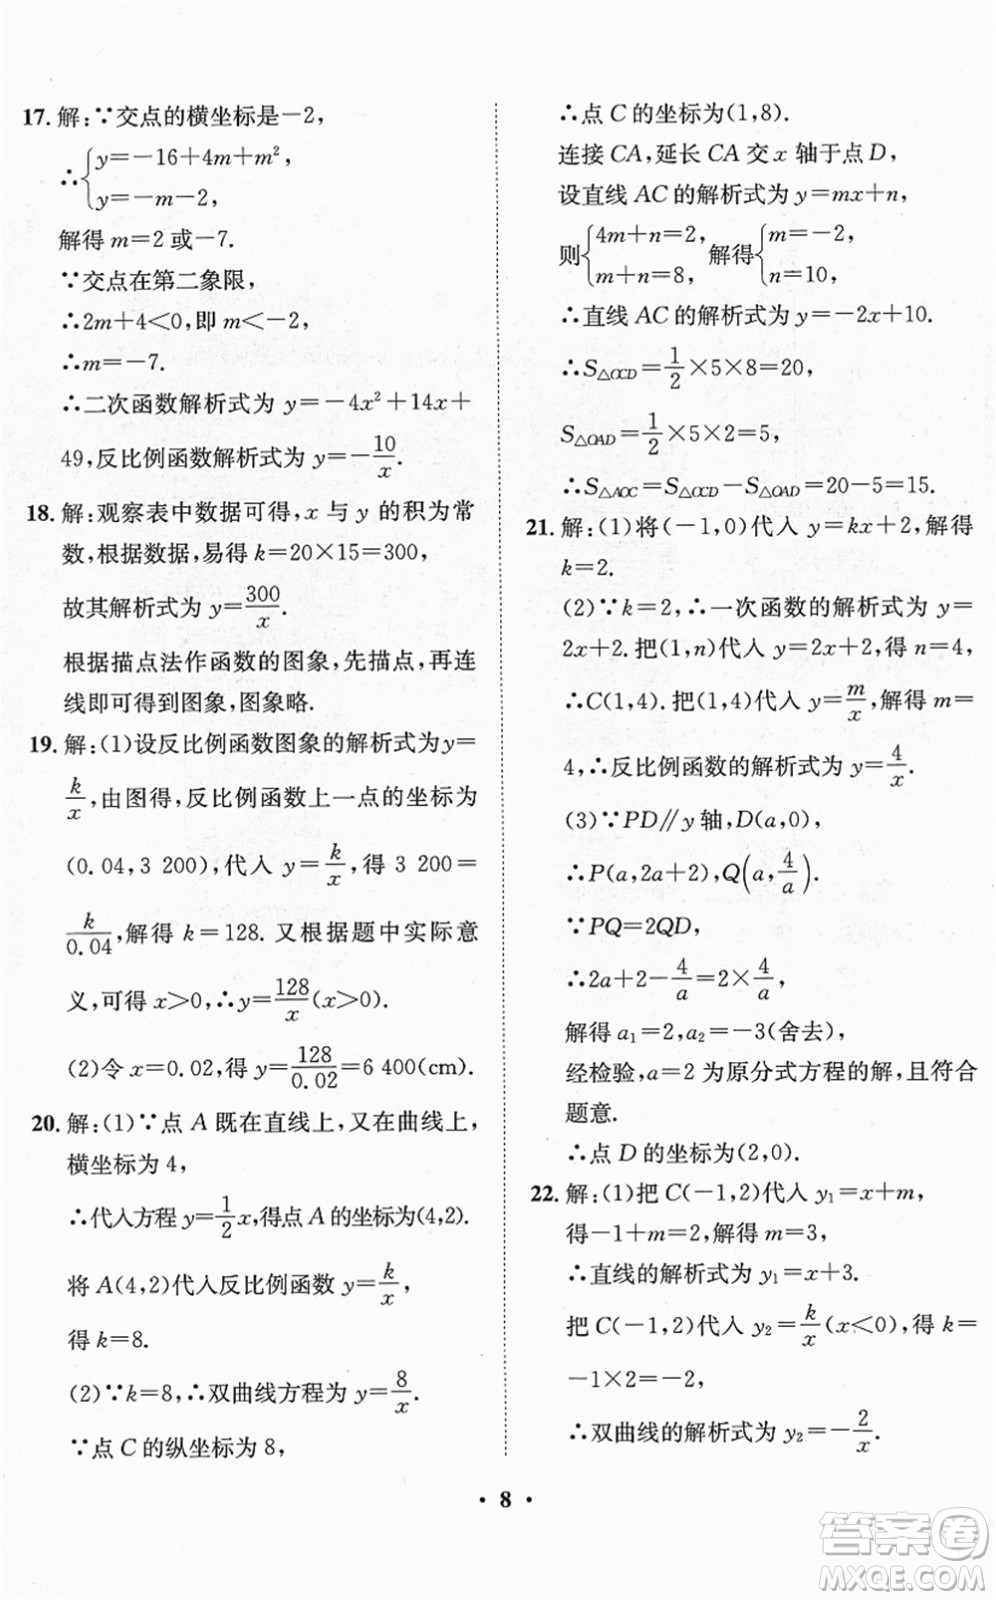 17. 解:∵交点的横坐标是－2，
∴{y=－16+4m+m²，
y=－m－2，
解得 m=2 或－7.
∵交点在第二象限，
∴2m+4<0，即 m<－2，
∴m=－7.
∴二次函数解析式为 y=－4x²+14x+
49，反比例函数解析式为 y=－10/x.
18. 解:观察表中数据可得，x 与 y 的积为常
数，根据数据，易得 k=20×15=300，
故其解析式为 y=300/x.
根据描点法作函数的图象，先描点，再连
线即可得到图象，图象略.
19. 解:(1)设反比例函数图象的解析式为 y=
k/x，由图得，反比例函数上一点的坐标为
(0.04,3 200)，代入 y=k/x，得 3 200=
k/0.04，解得 k=128. 又根据题中实际意
义，可得 x>0，∴y=128/x(x>0).
(2)令 x=0.02，得 y=128/0.02=6 400(cm).
20. 解:(1)∵点 A 既在直线上，又在曲线上，
横坐标为 4，
∴代入方程 y=1/2x，得点 A 的坐标为(4,2).
将 A(4,2)代入反比例函数 y=k/x，
得 k=8.
(2)∵k=8，∴双曲线方程为 y=8/x.
∵点 C 的纵坐标为 8，
∴点 C 的坐标为(1,8).
连接 CA，延长 CA 交 x 轴于点 D，
设直线 AC 的解析式为 y=mx+n，
则{4m+n=2，解得{m=－2，
m+n=8，n=10，
∴直线 AC 的解析式为 y=－2x+10.
∴S△OCD=1/2×5×8=20，
S△OAD=1/2×5×2=5，
∴S△AOC=S△OCD－S△OAD=20－5=15.
21. 解:(1)将(－1,0)代入 y=kx+2，解得
k=2.
(2)∵k=2，∴一次函数的解析式为 y=
2x+2. 把(1,n)代入 y=2x+2，得 n=4，
∴C(1,4). 把(1,4)代入 y=m/x，解得 m=
4，∴反比例函数的解析式为 y=4/x.
(3)∵PD∥y 轴，D(a,0)，
∴P(a,2a+2)，Q(a,4/a).
∵PQ=2QD，
∴2a+2－4/a=2×4/a，
解得 a₁=2，a₂=－3(舍去)，
经检验，a=2 为原分式方程的解，且符合
题意.
∴点 D 的坐标为(2,0).
22. 解:(1)把 C(－1,2)代入 y₁=x+m，
得－1+m=2，解得 m=3，
∴直线的解析式为 y₁=x+3.
把 C(－1,2)代入 y₂=k/x(x<0)，得 k=
－1×2=－2，
∴双曲线的解析式为 y₂=－2/x.
· 8 ·
答案卷
MXQE.COM